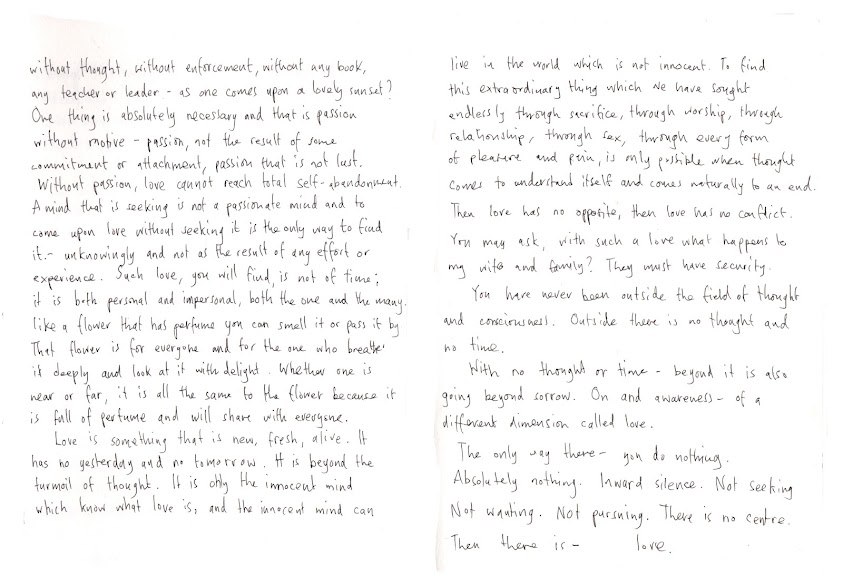 without thought, without enforcement, without any book,
any teacher or leader - as one comes upon a lovely sunset?
One thing is absolutely necessary and that is passion
without motive - passion, not the result of some
commitment or attachment, passion that is not lust.
Without passion, love cannot reach total self-abandonment.
A mind that is seeking is not a passionate mind and to
come upon love without seeking it is the only way to find
it. - unknowingly and not as the result of any effort or
experience. Such love, you will find, is not of time;
it is both personal and impersonal, both the one and the many.
like a flower that has perfume you can smell it or pass it by
That flower is for everyone and for the one who breathe
it deeply and look at it with delight. Whether one is
near or far, it is all the same to the flower because it
is full of perfume and will share with everyone.
Love is something that is new, fresh, alive. It
has no yesterday and no tomorrow. It is beyond the
turmoil of thought. It is only the innocent mind
which know what love is, and the innocent mind can
live in the world which is not innocent. To find
this extraordinary thing which we have sought
endlessly through sacrifice, through worship, through
relationship, through sex, through every form
of pleasure and pain, is only possible when thought
comes to understand itself and comes naturally to an end.
Then love has no opposite, then love has no conflict.
You may ask, with such a love what happens to
my wife and family? They must have security.
You have never been outside the field of thought
and consciousness. Outside there is no thought and
no time.
With no thought or time - beyond it is also
going beyond sorrow. On and awareness - of a
different dimension called love.
The only way there - you do nothing.
Absolutely nothing. Inward silence. Not seeking
Not wanting. Not pursuing. There is no centre.
Then there is - love.